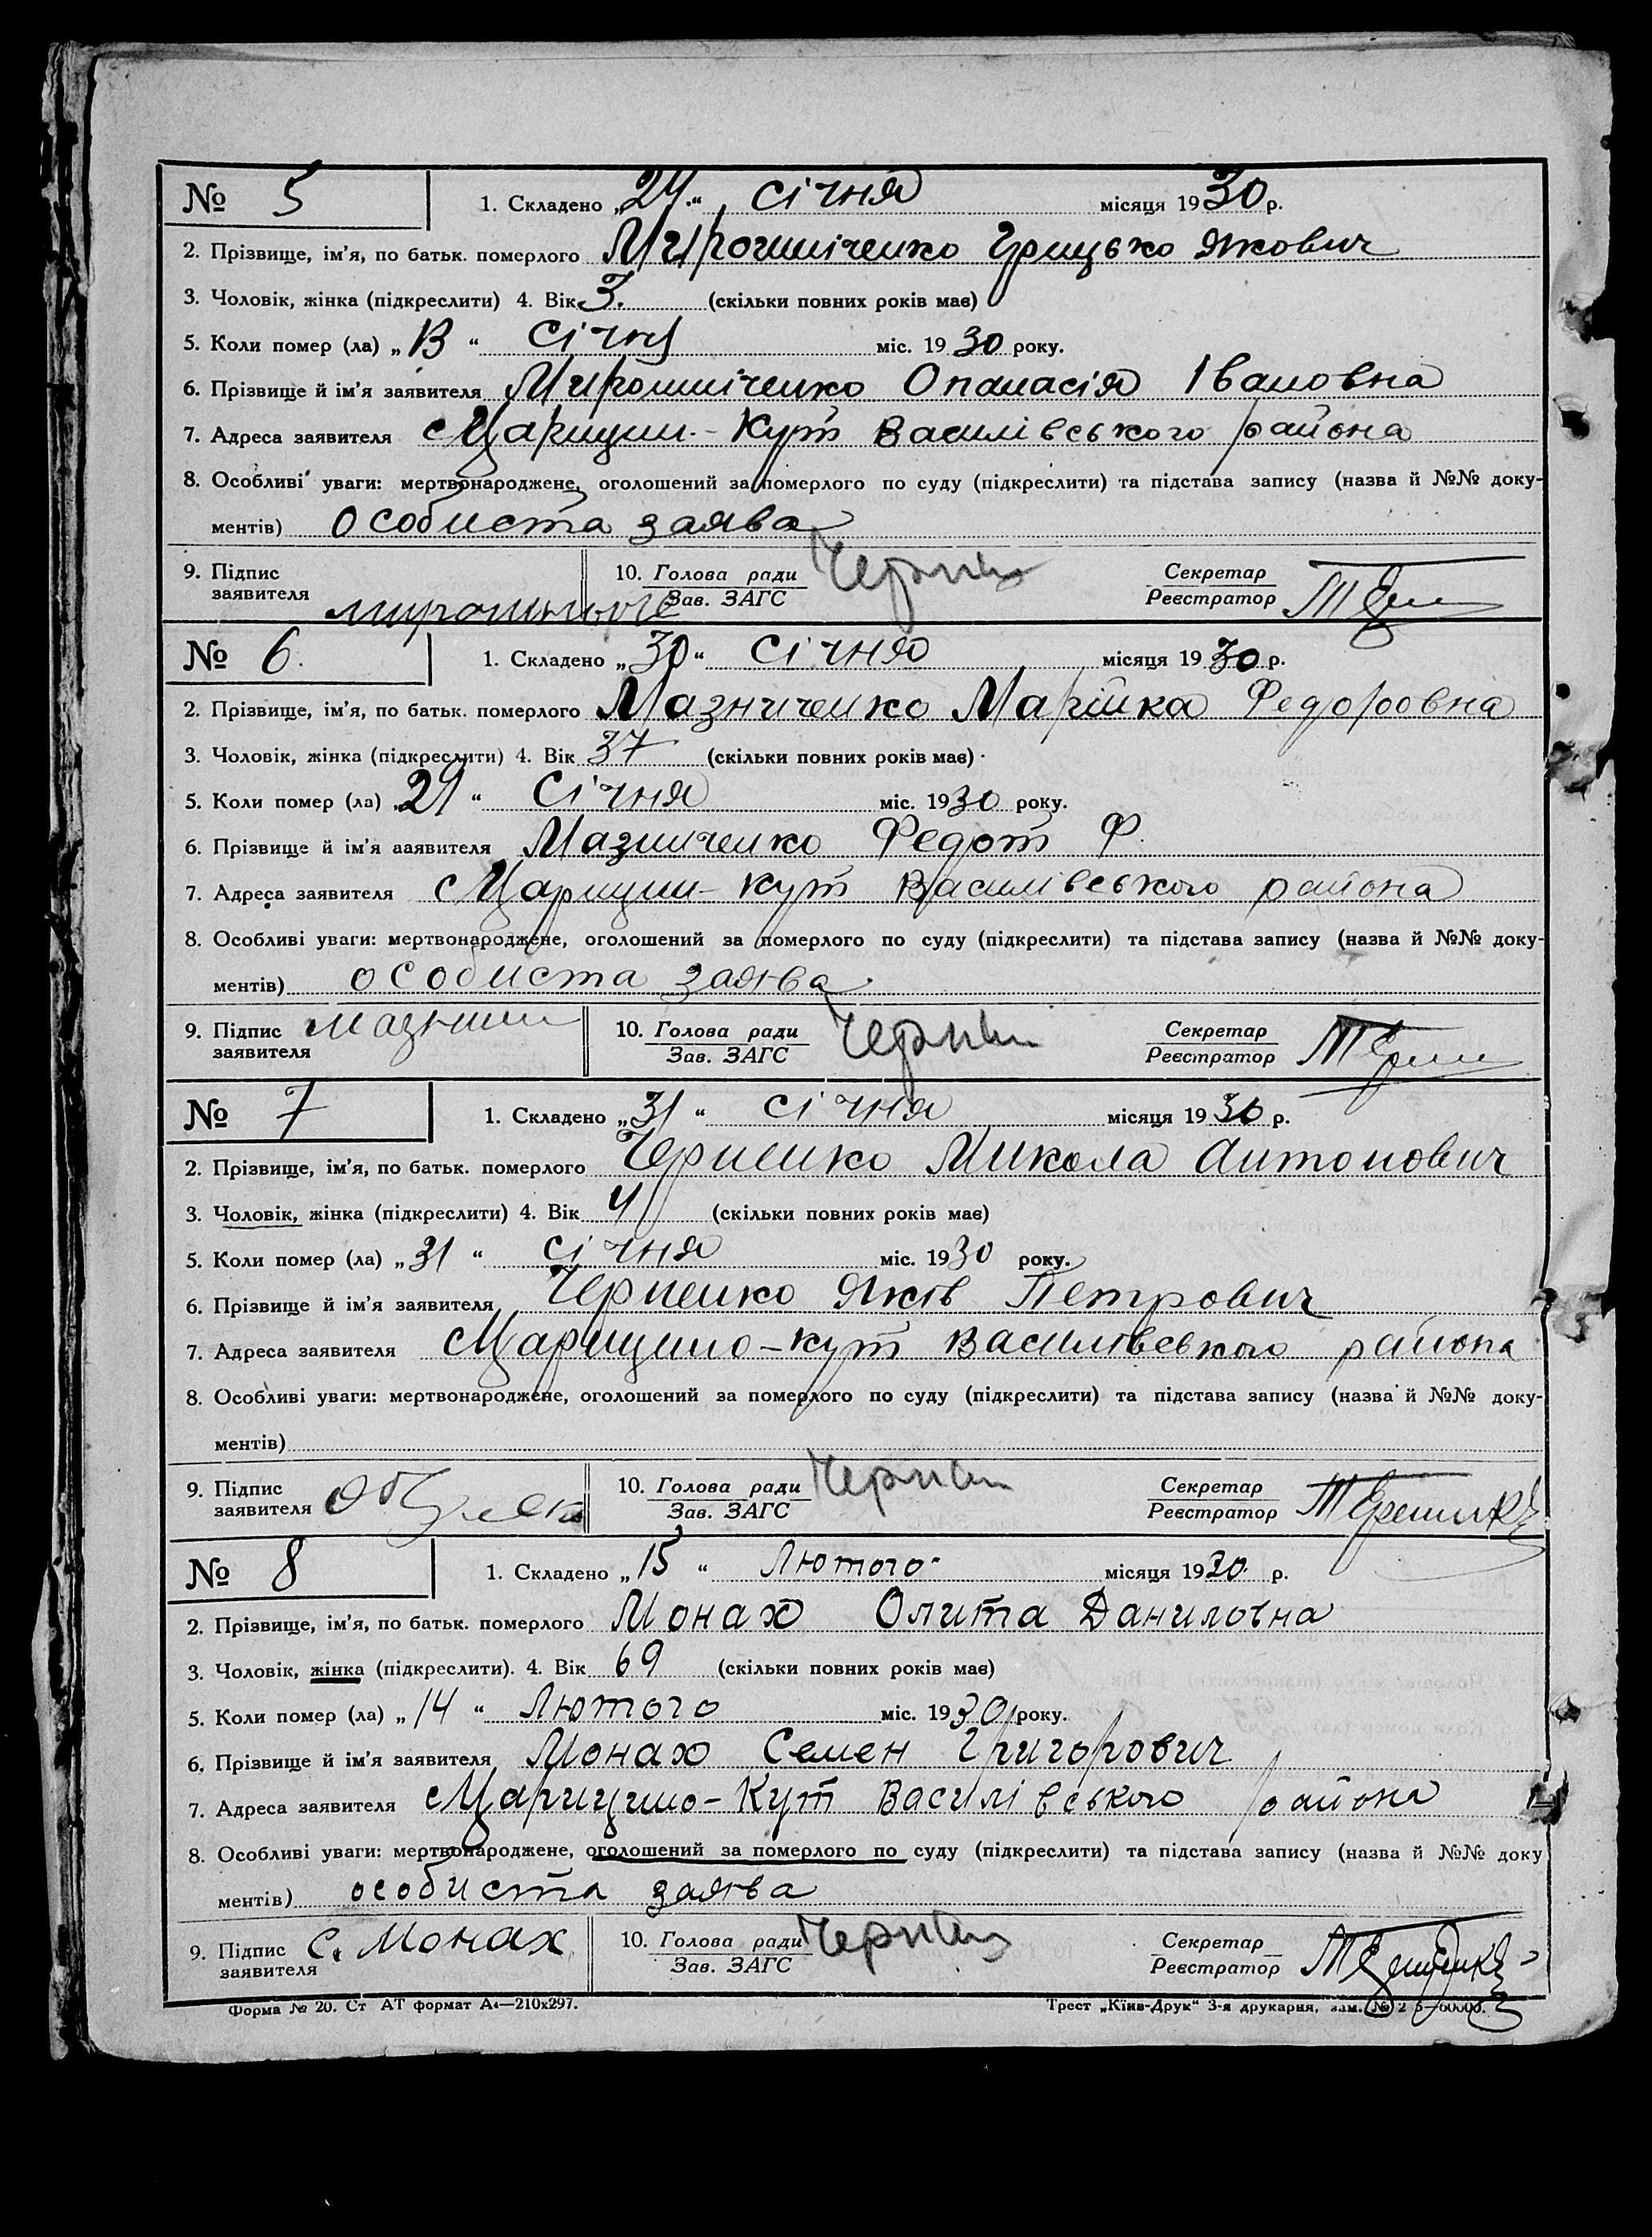 № 5 1. Складено „24“ січня місяця 1930 р.
2. Прізвище, ім'я, по батьк. померлого Мирошніченко Грицько Якович
3. Чоловік, жінка (підкреслити) 4. Вік 3. (скільки повних років має)
5. Коли помер (ла) „13“ січня міс. 1930 року.
6. Прізвище й ім'я заявителя Мирошніченко Опанасія Івановна
7. Адреса заявителя Царицин-Кут Василівського района
8. Особливі уваги: мертвонароджене, оголошений за померлого по суду (підкреслити) та підстава запису (назва й №№ доку-
ментів) особиста заява
9. Підпис 10. Голова ради Секретар
заявителя Зав. ЗАГС Реєстратор
№ 6. 1. Складено „30“ січня місяця 1930 р.
2. Прізвище, ім'я, по батьк. померлого Мазниченко Марійка Федоровна
3. Чоловік, жінка (підкреслити) 4. Вік 37 (скільки повних років має)
5. Коли помер (ла) „29“ січня міс. 1930 року.
6. Прізвище й ім'я заявителя Мазниченко Федот Ф.
7. Адреса заявителя Царицин-Кут Василівського района
8. Особливі уваги: мертвонароджене, оголошений за померлого по суду (підкреслити) та підстава запису (назва й №№ доку-
ментів) особиста заява
9. Підпис 10. Голова ради Секретар
заявителя Зав. ЗАГС Реєстратор
№ 7 1. Складено „31“ січня місяця 1930 р.
2. Прізвище, ім'я, по батьк. померлого Черненко Микола Антонович
3. Чоловік, жінка (підкреслити) 4. Вік 4 (скільки повних років має)
5. Коли помер (ла) „31“ січня міс. 1930 року.
6. Прізвище й ім'я заявителя Черненко Яків Петрович
7. Адреса заявителя Царицино-кут Василівського района
8. Особливі уваги: мертвонароджене, оголошений за померлого по суду (підкреслити) та підстава запису (назва й №№ доку-
ментів)
9. Підпис 10. Голова ради Секретар
заявителя Зав. ЗАГС Реєстратор
№ 8 1. Складено „15“ Лютого місяця 1930 р.
2. Прізвище, ім'я, по батьк. померлого Монах Олита Даниловна
3. Чоловік, жінка (підкреслити). 4. Вік 69 (скільки повних років має)
5. Коли помер (ла) „14“ Лютого міс. 1930 року.
6. Прізвище й ім'я заявителя Монах Семен Григорович
7. Адреса заявителя Царицино-Кут Василівського района
8. Особливі уваги: мертвонароджене, оголошений за померлого по суду (підкреслити) та підстава запису (назва й №№ доку
ментів) особиста заява
9. Підпис С. Монах 10. Голова ради Секретар
заявителя Зав. ЗАГС Реєстратор
Форма № 20. Ст АТ формат А4—210х297. Трест „Київ-Друк“ 3-я друкарня, зам. №